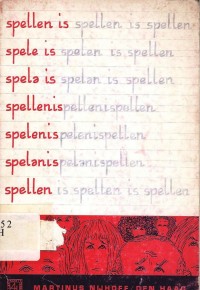 spellen is spellen is spellen
spele is spelen is spellen
spelə is spelen is spellen
spellenisspellenisspellen
spelenispelenispellen
spelənispelənispellen
spellen is spellen is spellen
52
H
MARTINUS NIJHOFF-DEN HAAG